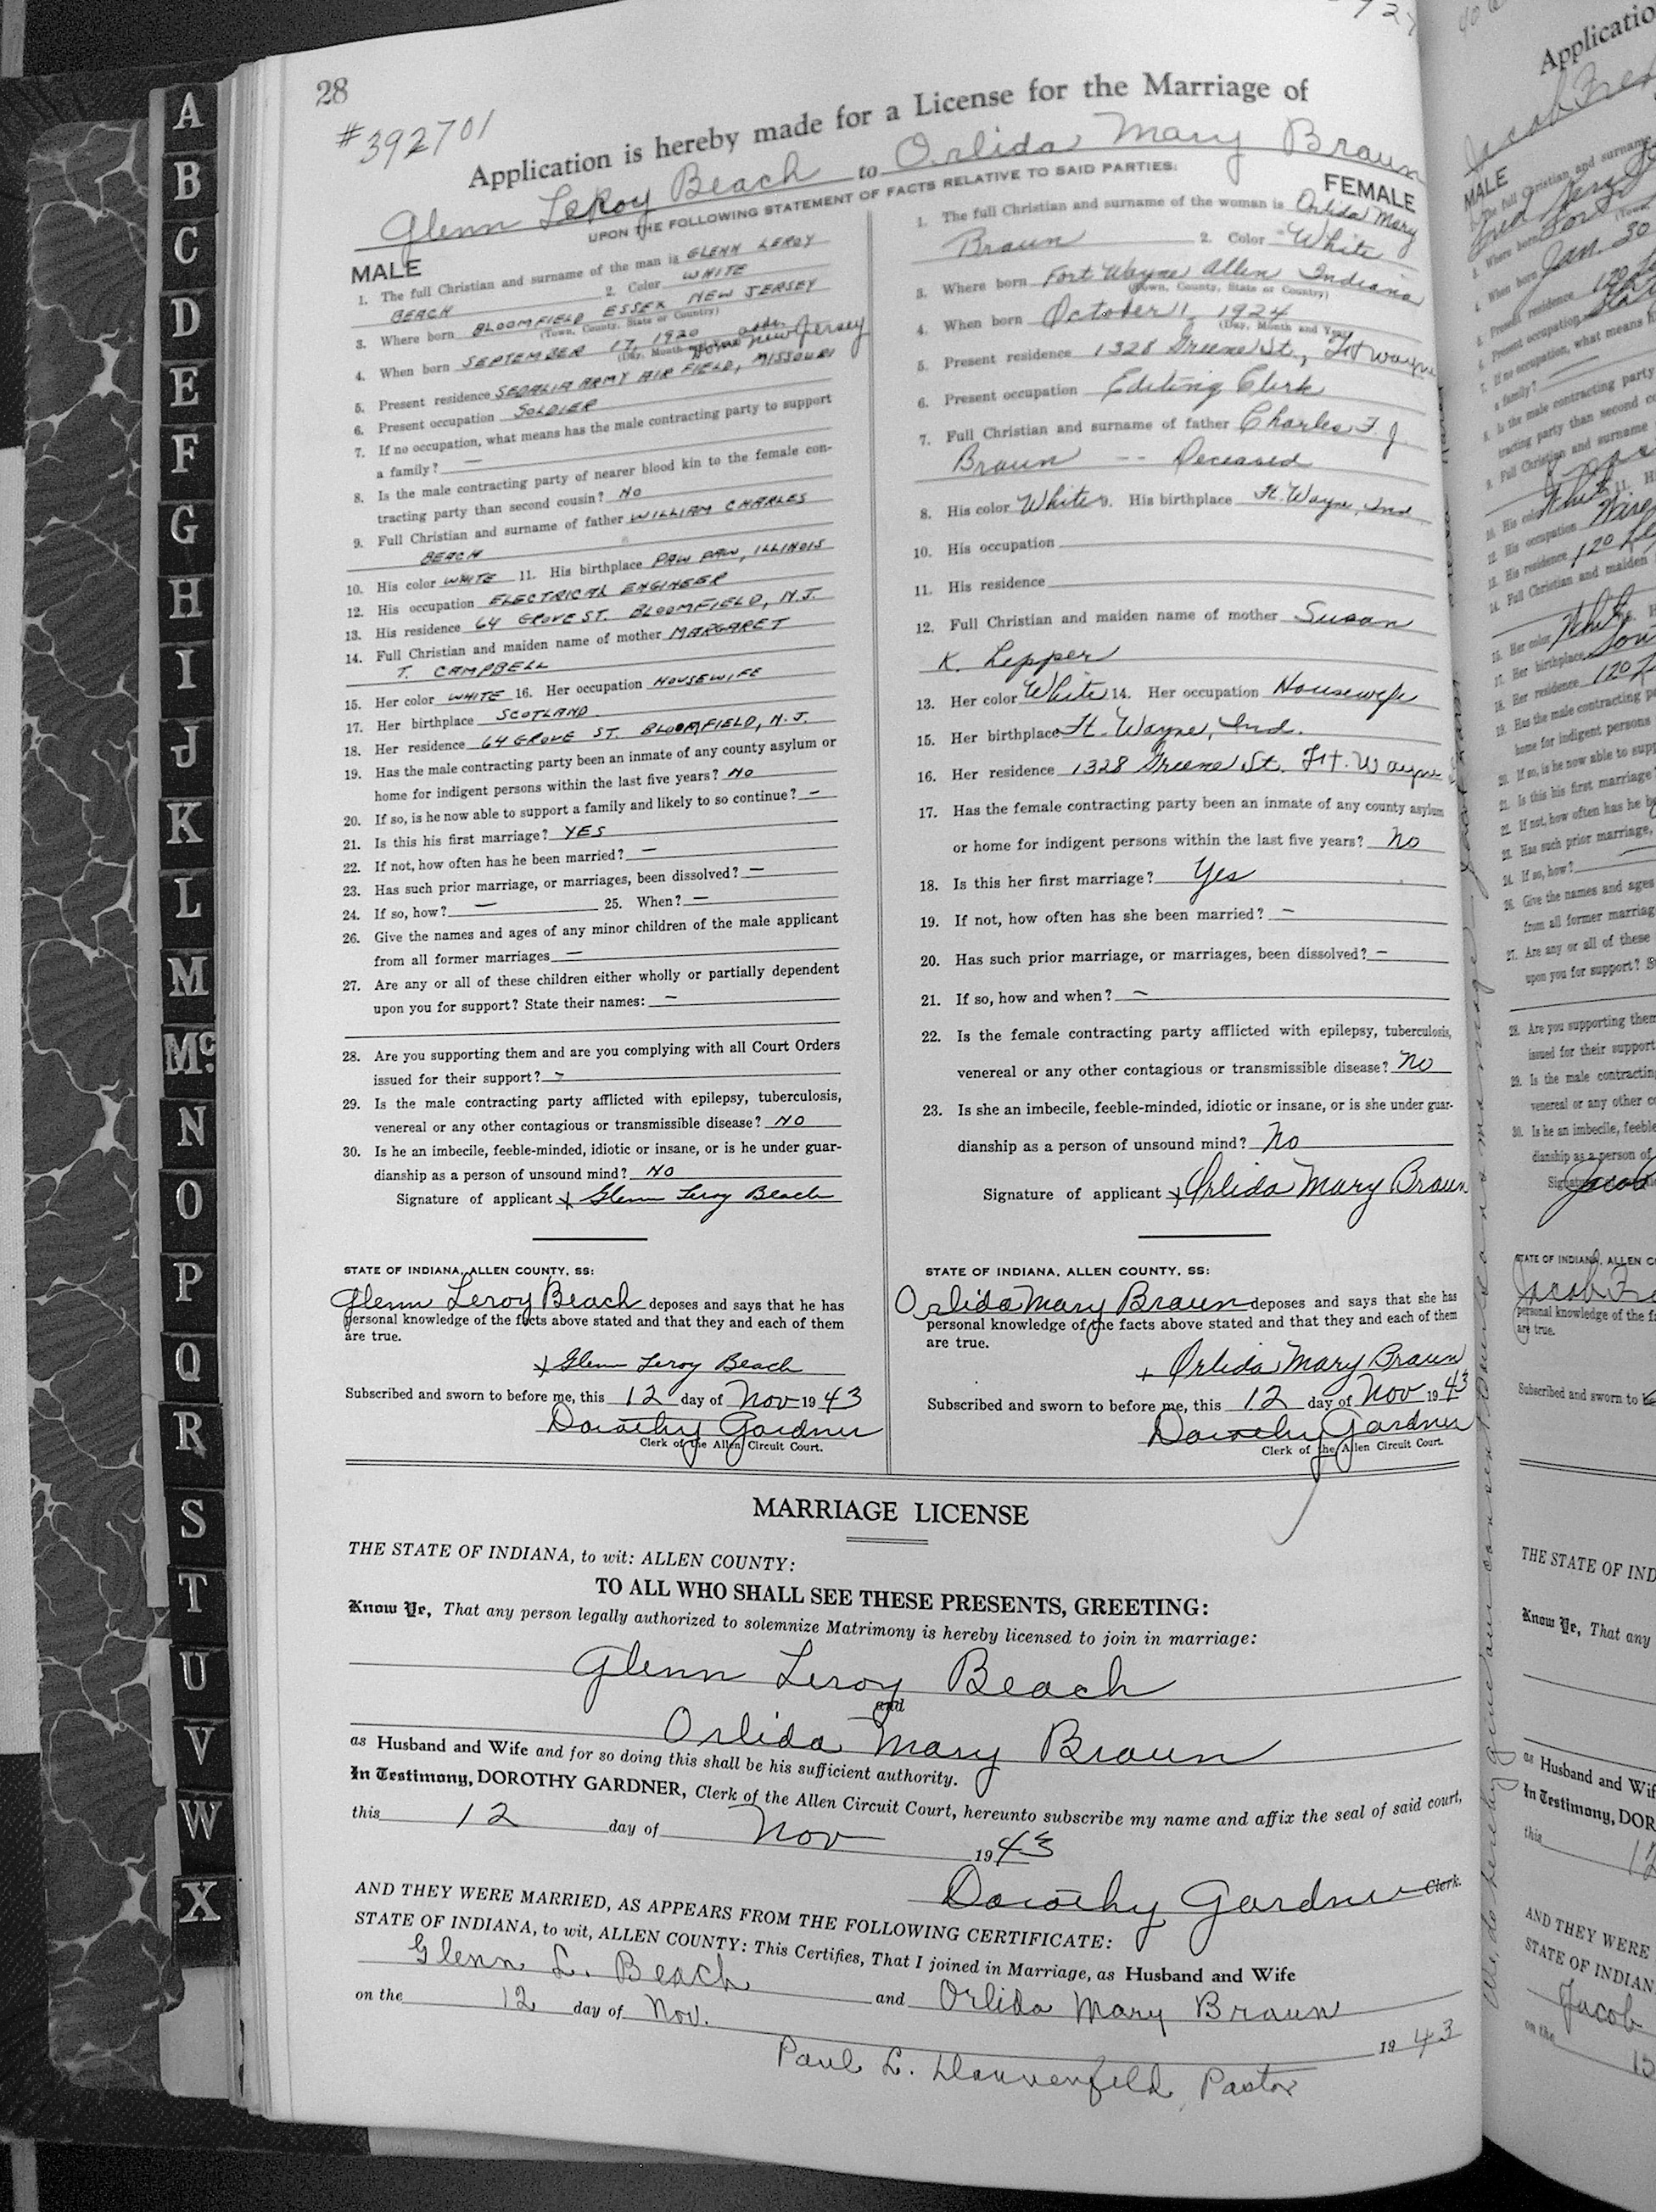 28
#392701
Application is hereby made for a License for the Marriage of
Glenn LeRoy Beach to Orlida Mary Braun
UPON THE FOLLOWING STATEMENT OF FACTS RELATIVE TO SAID PARTIES:
MALE
1. The full Christian and surname of the man is GLENN LEROY
BEACH 2. Color WHITE
3. Where born BLOOMFIELD ESSEX NEW JERSEY
(Town, County, State or Country)
4. When born SEPTEMBER 17, 1920
(Day, Month and Year)
Home New Jersey
5. Present residence SEDALIA ARMY AIR FIELD, MISSOURI
6. Present occupation SOLDIER
7. If no occupation, what means has the male contracting party to support
a family? —
8. Is the male contracting party of nearer blood kin to the female con-
tracting party than second cousin? NO
9. Full Christian and surname of father WILLIAM CHARLES
BEACH
10. His color WHITE 11. His birthplace PAW PAW, ILLINOIS
12. His occupation ELECTRICAL ENGINEER
13. His residence 64 GROVE ST. BLOOMFIELD, N.J.
14. Full Christian and maiden name of mother MARGARET
T. CAMPBELL
15. Her color WHITE 16. Her occupation HOUSEWIFE
17. Her birthplace SCOTLAND
18. Her residence 64 GROVE ST. BLOOMFIELD, N.J.
19. Has the male contracting party been an inmate of any county asylum or
home for indigent persons within the last five years? NO
20. If so, is he now able to support a family and likely to so continue? —
21. Is this his first marriage? YES
22. If not, how often has he been married? —
23. Has such prior marriage, or marriages, been dissolved? —
24. If so, how? — 25. When? —
26. Give the names and ages of any minor children of the male applicant
from all former marriages —
27. Are any or all of these children either wholly or partially dependent
upon you for support? State their names: —
28. Are you supporting them and are you complying with all Court Orders
issued for their support? —
29. Is the male contracting party afflicted with epilepsy, tuberculosis,
venereal or any other contagious or transmissible disease? NO
30. Is he an imbecile, feeble-minded, idiotic or insane, or is he under guar-
dianship as a person of unsound mind? NO
Signature of applicant x Glenn Leroy Beach
STATE OF INDIANA, ALLEN COUNTY, SS:
Glenn Leroy Beach deposes and says that he has
personal knowledge of the facts above stated and that they and each of them
are true.
x Glenn Leroy Beach
Subscribed and sworn to before me, this 12 day of Nov 1943
Dorothy Gardner
Clerk of the Allen Circuit Court.
FEMALE
1. The full Christian and surname of the woman is Orlida Mary
Braun 2. Color White
3. Where born Fort Wayne Allen Indiana
(Town, County, State or Country)
4. When born October 11, 1924
(Day, Month and Year)
5. Present residence 1328 Greene St., Ft Wayne
6. Present occupation Editing Clerk
7. Full Christian and surname of father Charles F. J.
Braun -- Deceased
8. His color White 9. His birthplace Ft. Wayne, Ind
10. His occupation
11. His residence
12. Full Christian and maiden name of mother Susan
K. Lepper
13. Her color White 14. Her occupation Housewife
15. Her birthplace Ft. Wayne, Ind.
16. Her residence 1328 Greene St. Ft. Wayne
17. Has the female contracting party been an inmate of any county asylum
or home for indigent persons within the last five years? No
18. Is this her first marriage? Yes
19. If not, how often has she been married? —
20. Has such prior marriage, or marriages, been dissolved? —
21. If so, how and when? —
22. Is the female contracting party afflicted with epilepsy, tuberculosis,
venereal or any other contagious or transmissible disease? No
23. Is she an imbecile, feeble-minded, idiotic or insane, or is she under guar-
dianship as a person of unsound mind? No
Signature of applicant x Orlida Mary Braun
STATE OF INDIANA, ALLEN COUNTY, SS:
Orlida Mary Braun deposes and says that she has
personal knowledge of the facts above stated and that they and each of them
are true.
x Orlida Mary Braun
Subscribed and sworn to before me, this 12 day of Nov 1943
Dorothy Gardner
Clerk of the Allen Circuit Court.
MARRIAGE LICENSE
THE STATE OF INDIANA, to wit: ALLEN COUNTY:
TO ALL WHO SHALL SEE THESE PRESENTS, GREETING:
Know Ye, That any person legally authorized to solemnize Matrimony is hereby licensed to join in marriage:
Glenn Leroy Beach
and
Orlida Mary Braun
as Husband and Wife and for so doing this shall be his sufficient authority.
In Testimony, DOROTHY GARDNER, Clerk of the Allen Circuit Court, hereunto subscribe my name and affix the seal of said court,
this 12 day of Nov 1943
Dorothy Gardner Clerk.
AND THEY WERE MARRIED, AS APPEARS FROM THE FOLLOWING CERTIFICATE:
STATE OF INDIANA, to wit, ALLEN COUNTY: This Certifies, That I joined in Marriage, as Husband and Wife
Glenn L. Beach and Orlida Mary Braun
on the 12 day of Nov. 1943
Paul L. Dannenfeldt, Pastor
A
B
C
D
E
F
G
H
I
J
K
L
M
Mc
N
O
P
Q
R
S
T
U
V
W
X